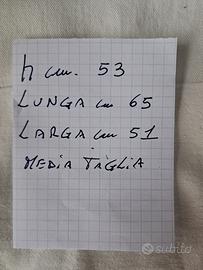 h cm. 53
LUNGA cm 65
LARGA cm 51
MEDIA TAGLIA
subito